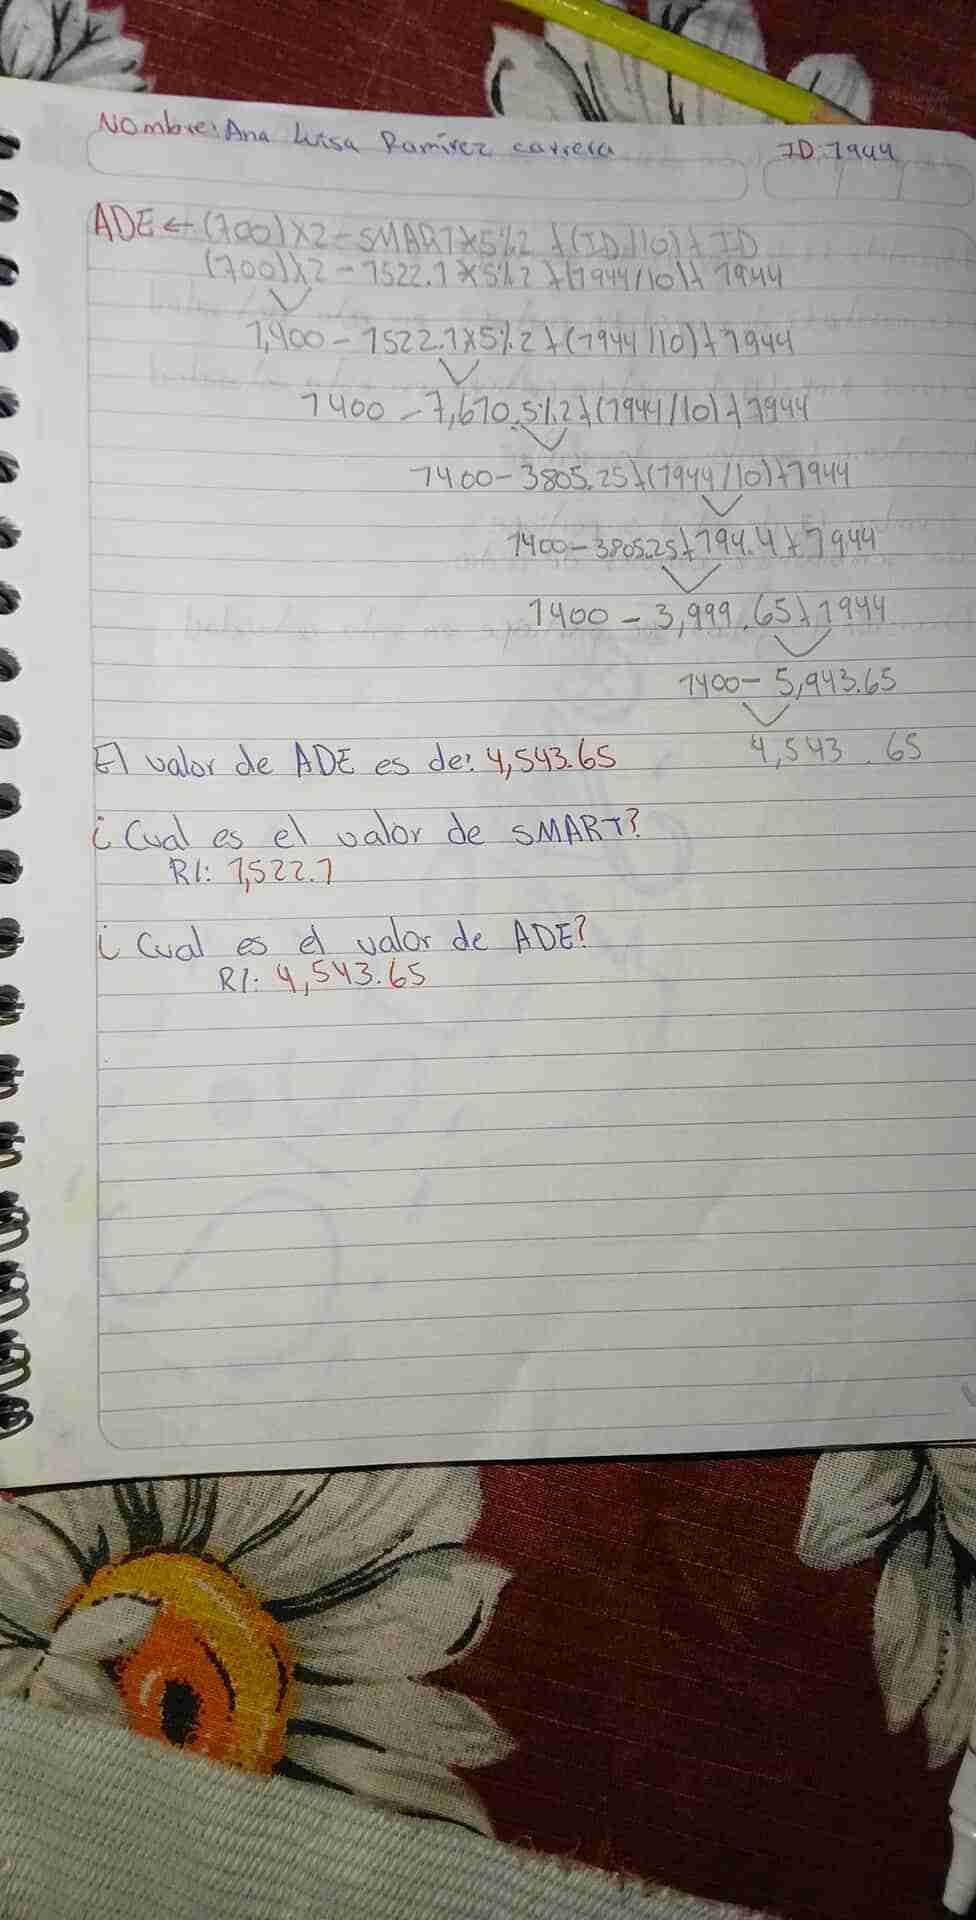 Nombre: Ana Luisa Ramirez carrera ID: 1944
ADE ← (700)x2 - SMART x 5%2 + (ID/10) + ID
(700)x2 - 1522.1 x 5%2 + (1944/10) + 1944
1,400 - 1522.1 x 5%2 + (1944/10) + 1944
1400 - 7,610.5%2 + (1944/10) + 1944
1400 - 3805.25 + (1944/10) + 1944
1400 - 3805.25 + 194.4 + 1944
1400 - 3,999.65 + 1944
1400 - 5,943.65
El valor de ADE es de: 4,543.65 4,543.65
¿Cual es el valor de SMART?
R/: 1,522.1
¿Cual es el valor de ADE?
R/: 4,543.65